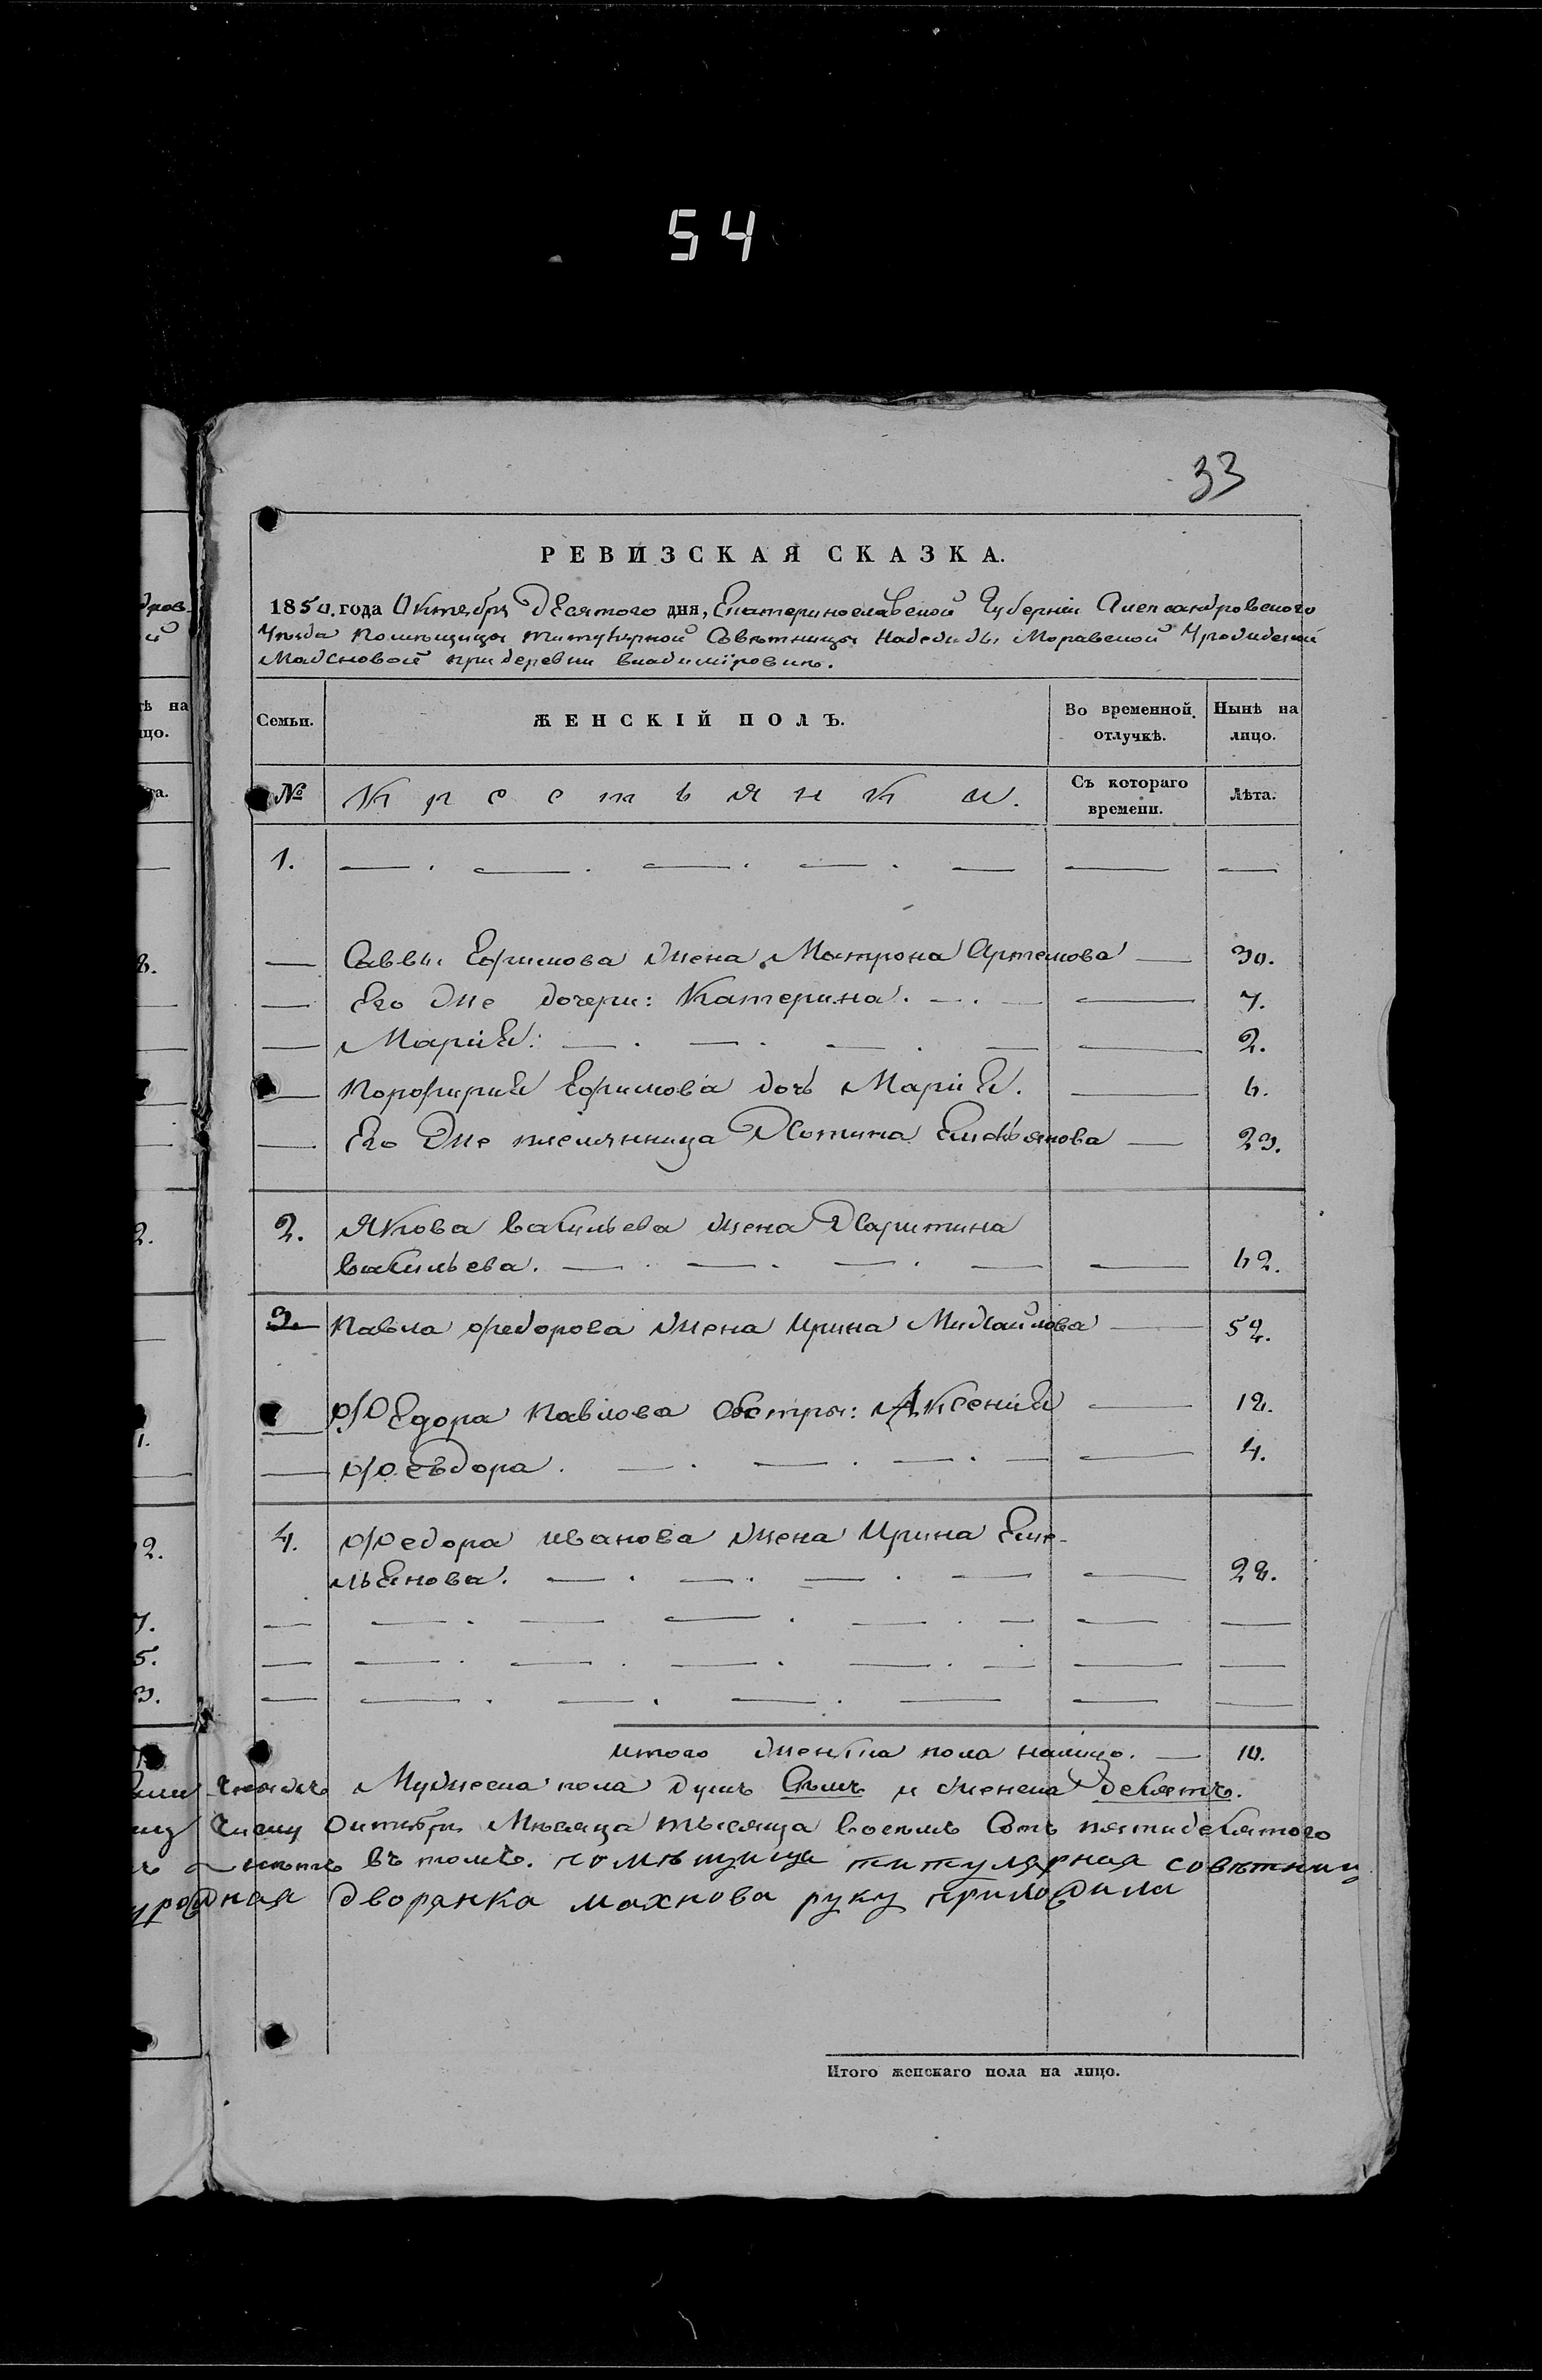 54
33
РЕВИЗСКАЯ СКАЗКА.
1850. года Октября десятого дня, Екатеринославской Губерніи Александровского
Уѣзда помѣщицы титулярной Совѣтницы Надежды Моравской Урожденой
Махновой при деревни владиміровки.
Семьи. ЖЕНСКІЙ ПОЛЪ. Во временной отлучкѣ. Нынѣ на лицо.
№ Крестьянки. Съ котораго времени. Лѣта.
1. — . — . — . — . — — —
— Саввы Ефимова жена Матрона Артемова — 30.
— Его же дочери: Катерина. — . — — 7.
— Марія: — . — . — . — — 2.
— Порфирия Ефимова дочь Марія. — 6.
— Его же племянница Хотина Емельянова — 23.
2. Якова васильева жена Харитина
васильева. — . — . — . — — 62.
3. Павла федорова жена Ирина Михайлова — 52.
— Федора Павлова сестры: Аксенія — 12.
— Феѣдора. — . — . — . — — 4.
4. Федора иванова жена Ирина Еме-
льянова. — . — . — . — — 22.
— — . — — . — . — — —
— — . — . — . — . — — —
— — . — . — . — — —
итого женска пола налицо. — 10.
мужеска пола душъ Семь и женска десять.
Числу Октября Мѣсяца тысяща восемь Сотъ пятидесятого
въ томъ. помѣщица титулярная совѣтниц
уродная дворянка махнова руку приложила
Итого женскаго пола на лицо.